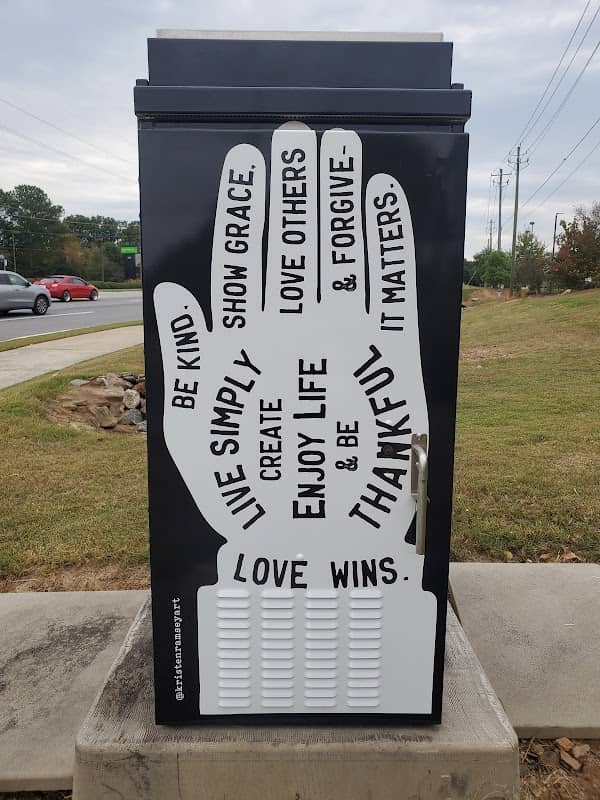 BE KIND.
SHOW GRACE.
LOVE OTHERS
& FORGIVE-
IT MATTERS.
LIVE SIMPLY
CREATE
ENJOY LIFE
& BE
THANKFUL
LOVE WINS.
@kristenramseyart